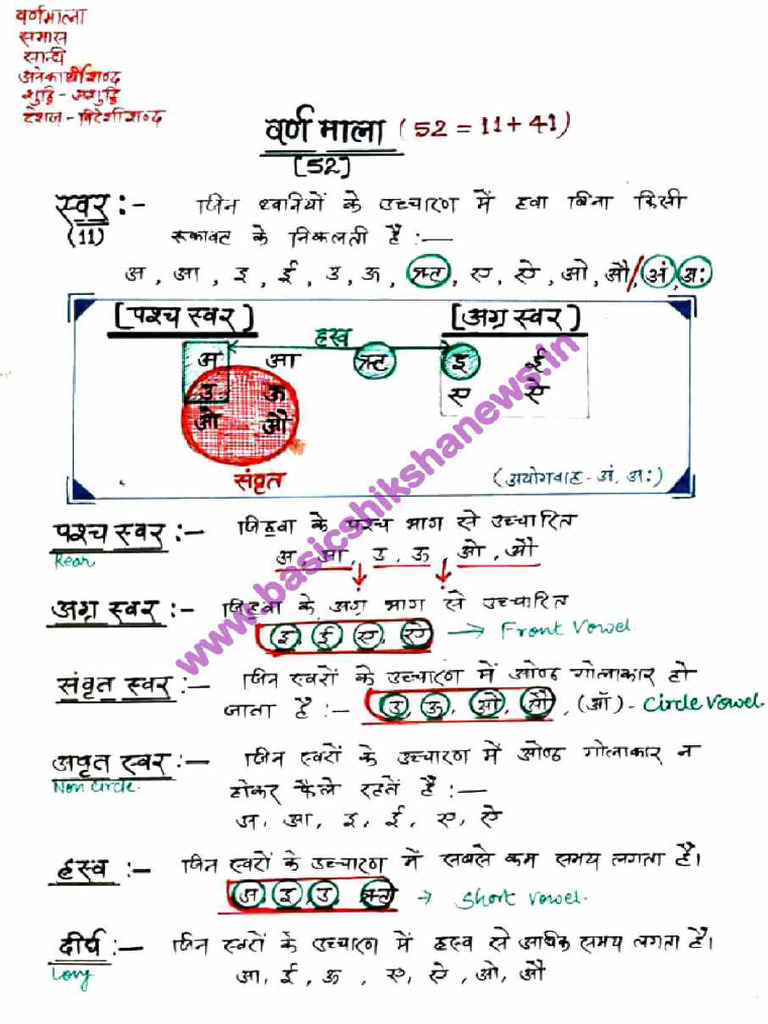 वर्णमाला
समास
सन्धि
अनेकार्थी शब्द
शुद्धि - अशुद्धि
देशज - विदेशी शब्द
वर्ण माला ( 52 = 11 + 41 )
[52]
स्वर :- जिन ध्वनियों के उच्चारण में हवा बिना किसी
(11) रूकावट के निकलती है :—
अ , आ , इ , ई , उ , ऊ , ऋ , ए , ऐ , ओ , औ / अं , अः
[पश्च स्वर] [अग्र स्वर]
ह्रस्व
अ आ ऋ इ ई
उ ऊ ए ऐ
ओ औ
संवृत (अयोगवाह - अं, अः)
पश्च स्वर :- जिहवा के पश्च भाग से उच्चारित
Rear अ आ , उ , ऊ , ओ , औ
अग्र स्वर :- जिहवा के अग्र भाग से उच्चारित
इ , ई , ए , ऐ → Front Vowel
संवृत स्वर :- जिन स्वरों के उच्चारण में ओष्ठ गोलाकार हो
जाता है :- उ , ऊ , ओ , औ , (ऑ) - Circle Vowel.
अवृत स्वर :- जिन स्वरों के उच्चारण में ओष्ठ गोलाकार न
Non Circle. होकर फैले रहतें है :—
अ, आ , इ , ई , ए , ऐ
ह्रस्व :- जिन स्वरों के उच्चारण में सबसे कम समय लगता है।
अ , इ , उ , ऋ → Short vowel.
दीर्घ :- जिन स्वरों के उच्चारण में ह्रस्व से अधिक समय लगता है।
Long आ, ई , ऊ , ए , ऐ , ओ , औ
www.basicshikshanews.in